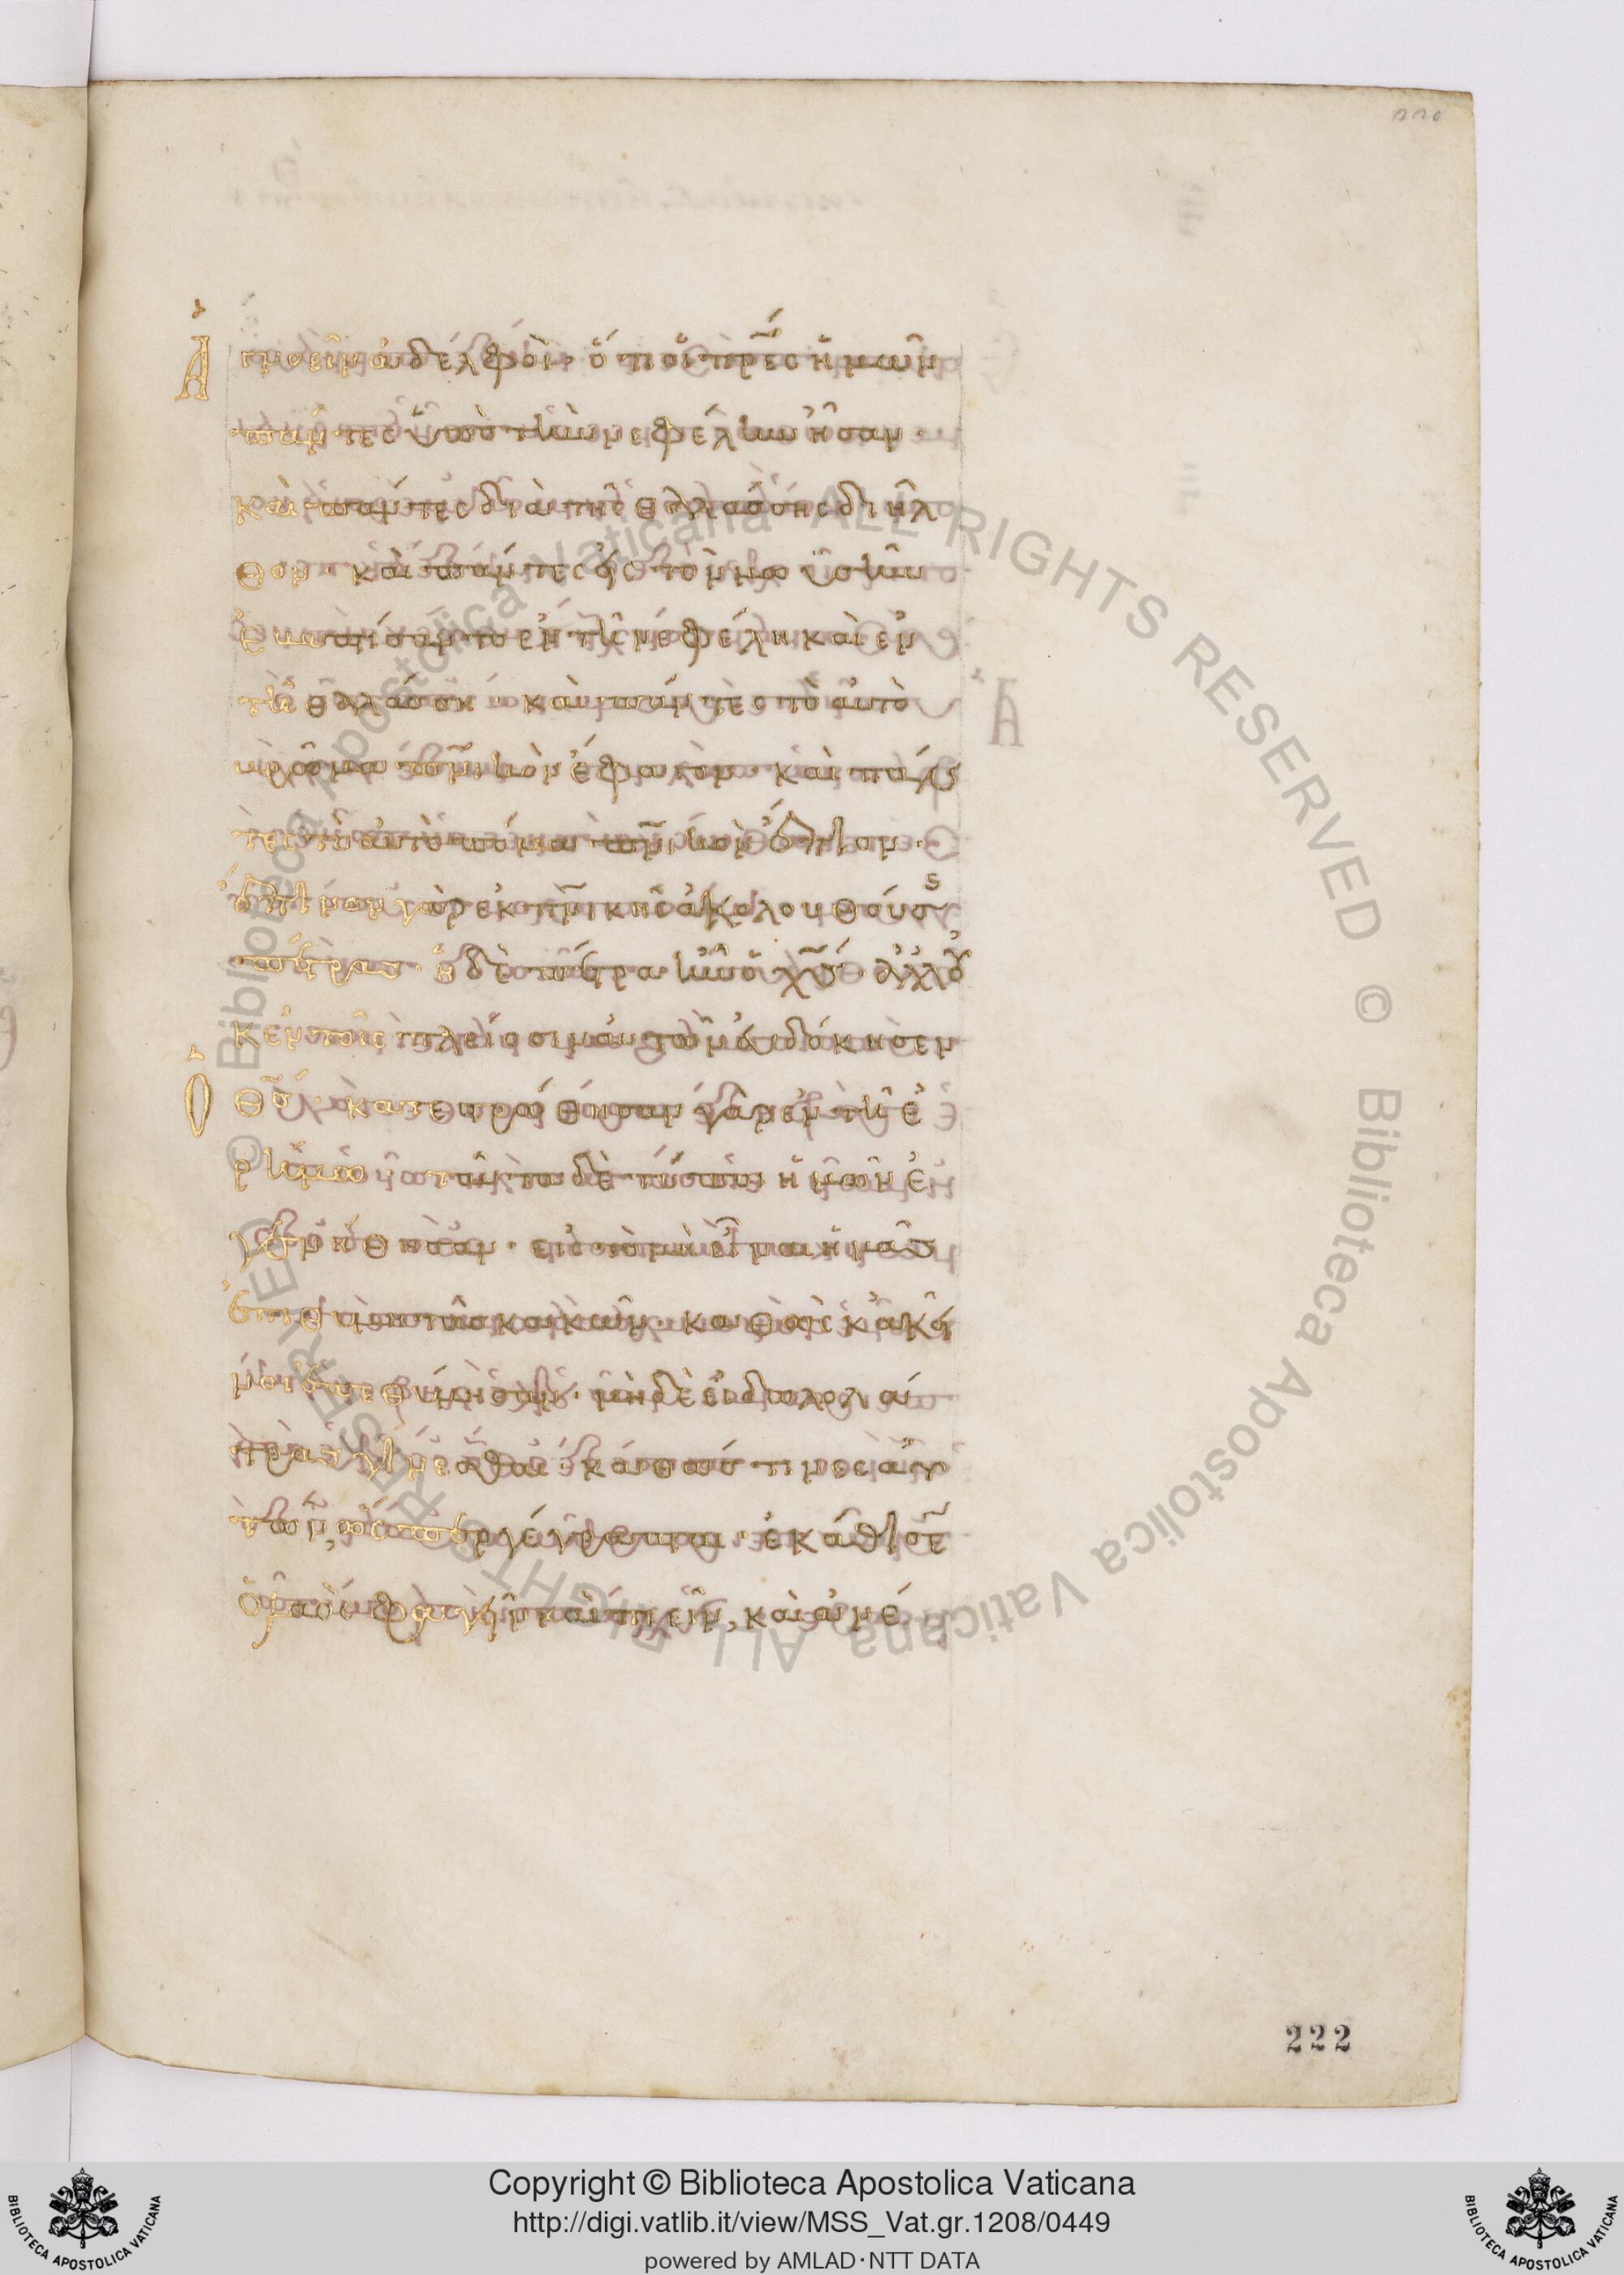 220
Ἀ
γνοεῖν ἀδελφοὶ· ὅτι οἱ πρ̅ες ἡμῶν
πάντες ὑπὸ τὴν νεφέλην ἦσαν
καὶ πάντες διὰ τῆς θαλάσσης διῆλ
θον· καὶ πάντες εἰς τὸν μω ϋσῆν
ἐβαπτίσαντο ἐν τῇ νεφέλῃ καὶ ἐν
τῇ θαλάσσῃ· καὶ πάντες τὸ αὐτὸ
βρῶμα πν̅ικὸν ἔφαγον καὶ πάν
τες τὸ αὐτὸ πόμα πν̅ικὸν ἔπιον·
ἔπινον γὰρ ἐκ πν̅ικῆς ἀκολουθούσς
πέτρας· ἡ δὲ πέτρα ἦν ὁ χς̅· ἀλλ' οὐ
κ ἐν τοῖς πλείοσιν αὐτῶν εὐδόκησεν
Ο
θς̅· κατεστρώθησαν γὰρ ἐν τῇ ἐ
ρήμω· ταῦτα δὲ τύποι ἡμῶν ἐ
γενήθησαν· εἰς τὸ μὴ εἶναι ἡμᾶς
ἐπιθυμητὰς κακῶν· καθὼς κἀκεῖ
νοι ἐπεθύμησαν· μηδὲ εἰδωλολά
τραι γίνεσθαι· καθώς τινες αὐ
τῶν, ὥσπερ γέγραπται· ἐκάθισε̅
ὁ λαὸς φαγεῖν καὶ πιεῖν, καὶ ἀνέ
222
© Biblioteca Apostolica Vaticana ALL RIGHTS RESERVED © Biblioteca Apostolica Vaticana ALL RIGHTS RESERVED
Copyright © Biblioteca Apostolica Vaticana
http://digi.vatlib.it/view/MSS_Vat.gr.1208/0449
powered by AMLAD·NTT DATA
BIBLIOTECA APOSTOLICA VATICANA
BIBLIOTECA APOSTOLICA VATICANA